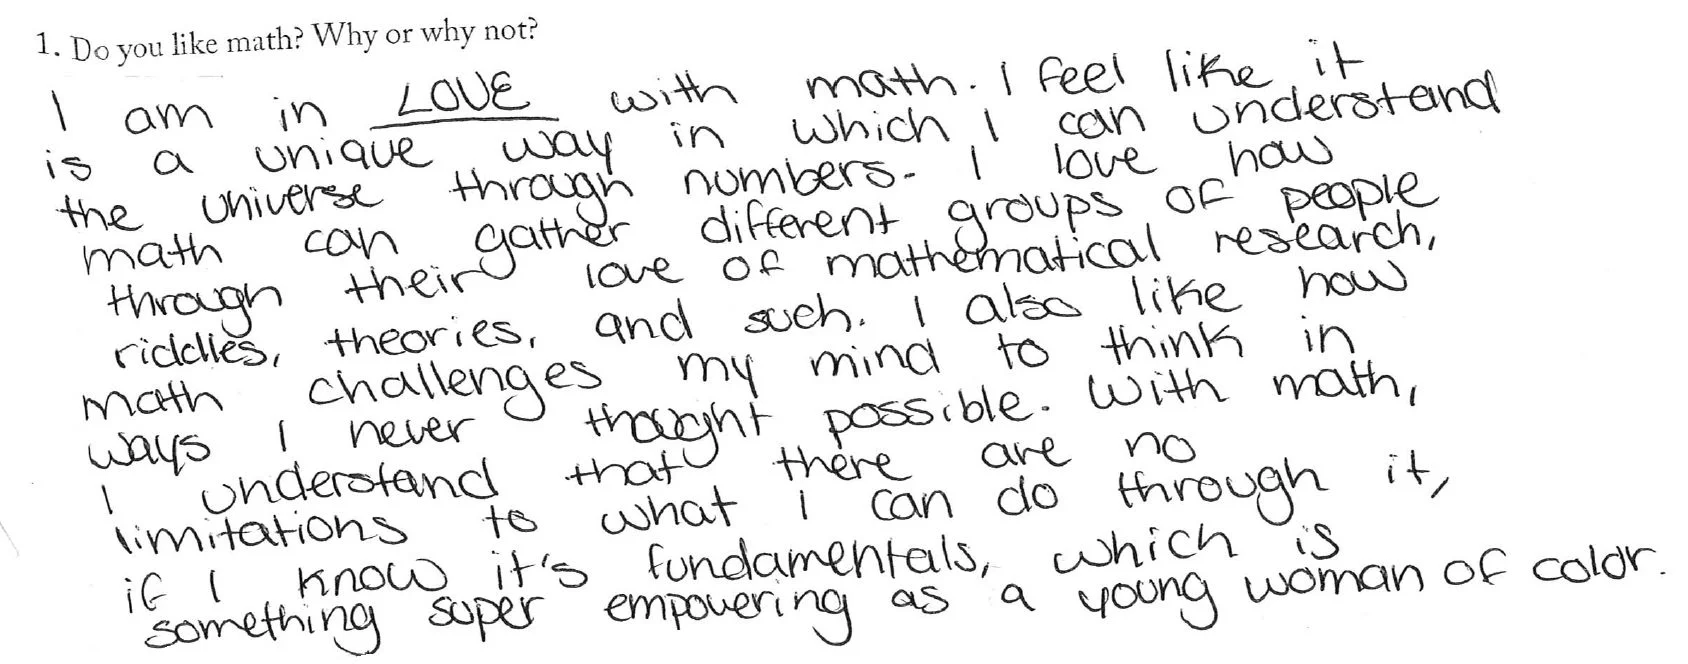 1. Do you like math? Why or why not?
I am in LOVE with math. I feel like it
is a unique way in which I can understand
the universe through numbers. I love how
math can gather different groups of people
through their love of mathematical research,
riddles, theories, and such. I also like how
math challenges my mind to think in
ways I never thought possible. With math,
I understand that there are no
limitations to what I can do through it,
if I know it's fundamentals, which is
something super empowering as a young woman of color.